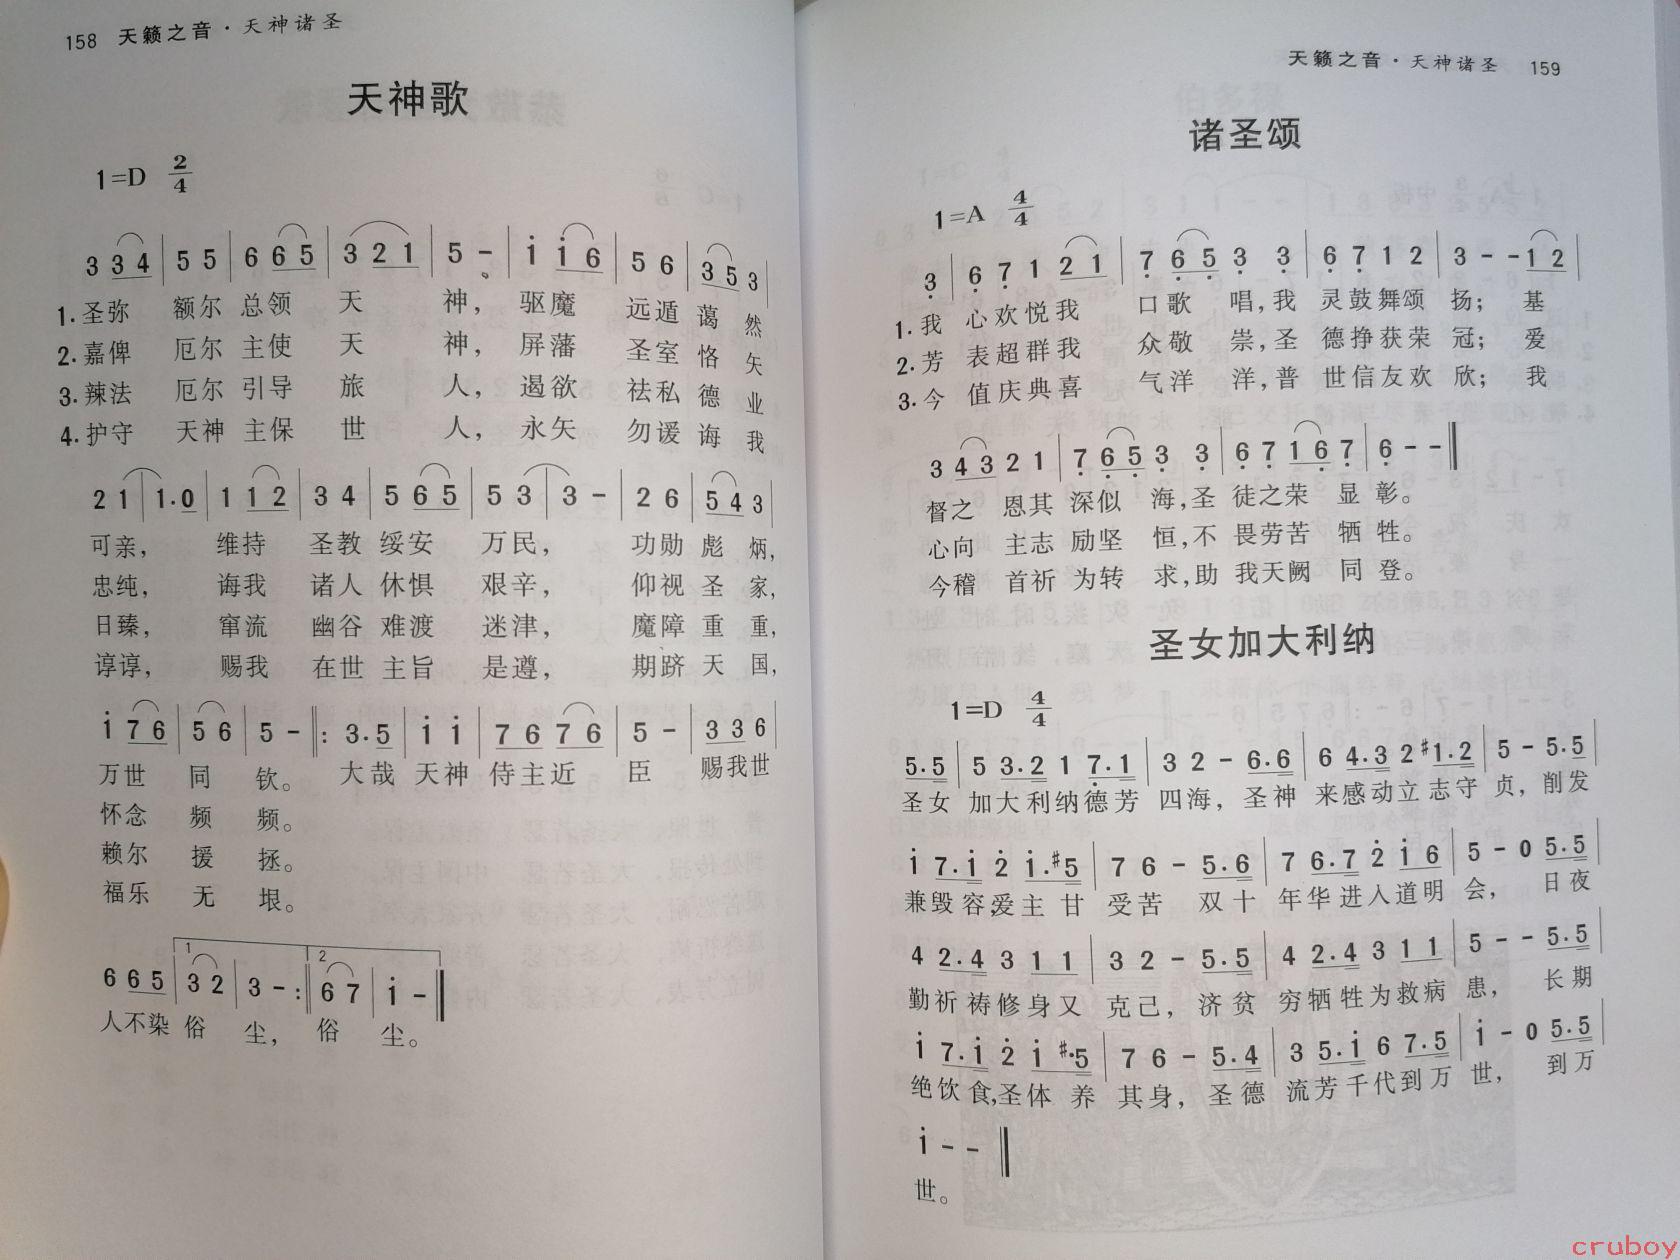 158 天籁之音·天神诸圣
天神歌
1=D 2/4
3 3 4 | 5 5 | 6 6 5 | 3 2 1 | 5 - | i i 6 | 5 6 | 3 5 3 |
1.圣弥 额尔 总领 天 神， 驱魔 远遁 蔼 然
2.嘉俾 厄尔 主使 天 神， 屏藩 圣室 恪 矢
3.辣法 厄尔 引导 旅 人， 遏欲 祛私 德 业
4.护守 天神 主保 世 人， 永矢 勿谖 诲 我
2 1 | 1·0 | 1 1 2 | 3 4 | 5 6 5 | 5 3 | 3 - | 2 6 | 5 4 3 |
可亲， 维持 圣教 绥安 万民， 功勋 彪 炳，
忠纯， 诲我 诸人 休惧 艰辛， 仰视 圣 家，
日臻， 窜流 幽谷 难渡 迷津， 魔障 重 重，
谆谆， 赐我 在世 主旨 是遵， 期跻 天 国，
i 7 6 | 5 6 | 5 - ‖: 3·5 | i i | 7 6 7 6 | 5 - | 3 3 6 |
万世 同 钦。 大哉 天神 侍主近 臣 赐我世
怀念 频 频。
赖尔 援 拯。
福乐 无 垠。
1 2
6 6 5 | 3 2 | 3 - :‖ 6 7 | i - ‖
人不染 俗 尘， 俗 尘。
天籁之音·天神诸圣 159
诸圣颂
1=A 4/4
3 | 6 7 1 2 1 | 7 6 5 3 3 | 6 7 1 2 | 3 - - 1 2 |
1.我 心欢悦我 口歌 唱，我 灵鼓舞颂 扬； 基
2.芳 表超群我 众敬 崇，圣 德挣获荣 冠； 爱
3.今 值庆典喜 气洋 洋，普 世信友欢 欣； 我
3 4 3 2 1 | 7 6 5 3 3 | 6 7 1 6 7 | 6 - - ‖
督之 恩其 深似 海，圣 徒之荣 显 彰。
心向 主志 励坚 恒，不 畏劳苦 牺 牲。
今稽 首祈 为转 求，助 我天阙 同 登。
圣女加大利纳
1=D 4/4
5.5 | 5 3.2 1 7.1 | 3 2 - 6.6 | 6 4.3 2 #1.2 | 5 - 5.5 |
圣女 加大利纳德芳 四海，圣神 来感动立志守 贞，削发
i 7.i 2 i.#5 | 7 6 - 5.6 | 7 6.7 2 i 6 | 5 - 0 5.5 |
兼毁容，爱主 甘 受苦 双十 年华进入道明 会， 日夜
4 2.4 3 1 1 | 3 2 - 5.5 | 4 2.4 3 1 1 | 5 - - 5.5 |
勤祈祷修身又 克己，济贫 穷牺牲为救病 患， 长期
i 7.i 2 i #·5 | 7 6 - 5.4 | 3 5.i 6 7.5 | i - 0 5.5 |
绝饮食，圣体 养 其身，圣德 流芳千代到万 世， 到万
i - - ‖
世。
cruboy